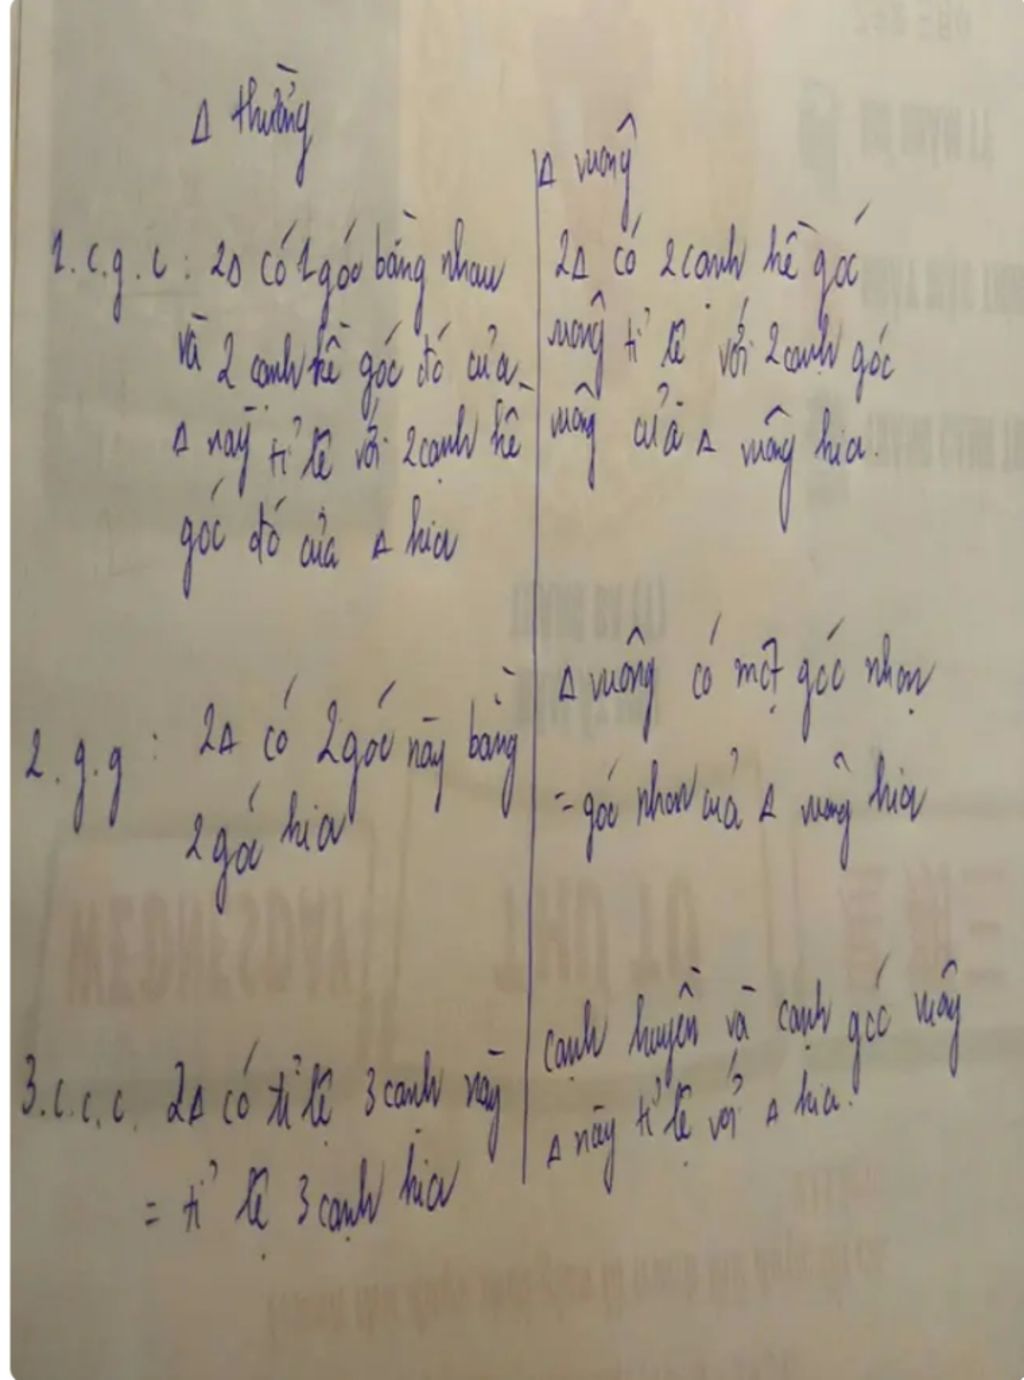 Δ thường
Δ vuông
1. c.g.c : 2Δ có 1 góc bằng nhau
và 2 cạnh kề góc đó của
Δ này tỉ lệ với 2 cạnh kề
góc đó của Δ kia
2Δ có 2 cạnh kề góc
vuông tỉ lệ với 2 cạnh góc
vuông của Δ vuông kia.
2. g.g : 2Δ có 2 góc này bằng
2 góc kia
Δ vuông có một góc nhọn
= góc nhọn của Δ vuông kia
3. c.c.c. 2Δ có tỉ lệ 3 cạnh này
= tỉ lệ 3 cạnh kia
cạnh huyền và cạnh góc vuông
Δ này tỉ lệ với Δ kia.